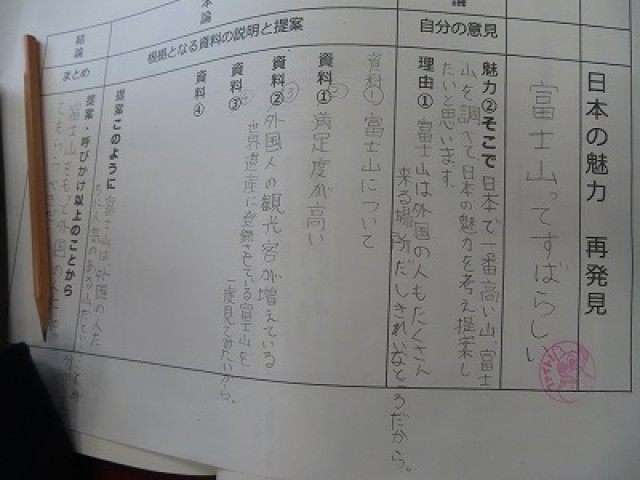 日本の魅力 再発見
富士山ってすばらしい
論
自分の意見
魅力②そこで 日本で一番高い山、富士
山を調べて日本の魅力を考え提案し
たいと思います。
理由① 富士山は外国の人もたくさん
来る場所だしきれいなところだから。
本論
根拠となる資料の説明と提案
資料① 富士山について
資料① 満足度が高い
資料② 外国人の観光客が増えている
資料③ 世界遺産に登録させている富士山を
一度見てみたいから。
資料④
結論
まとめ
提案 このように 富士山は外国の人た
ちに人気のある山だ
提案・呼びかけ以上のことから
富士山をもっと外国の人
てもらう